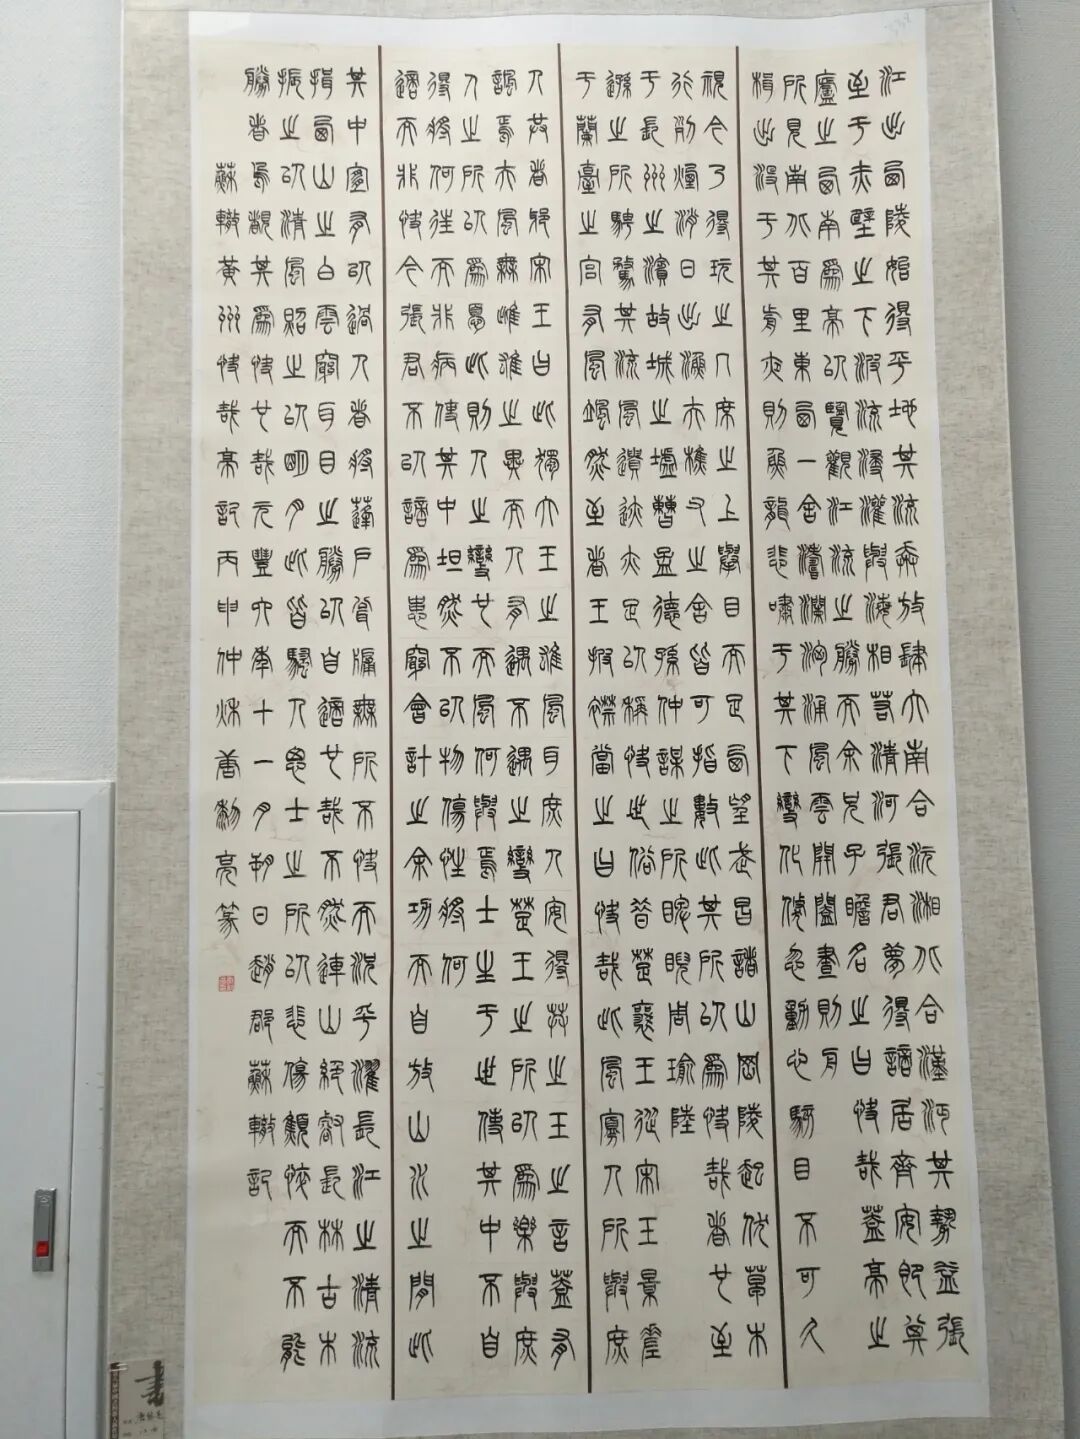 江出西陵始得平地其流奔放肆大南合沅湘北合漢沔其勢益張
至于赤壁之下波流浸灌與海相若清河張君夢得謫居齊安即其
廬之西南為亭以覽觀江流之勝而余兄子瞻名之曰快哉蓋亭之
所見南北百里東西一舍濤瀾洶涌風雲開闔晝則舟
楫出沒于其前夜則魚龍悲嘯于其下變化倏忽動心駭目不可久
視今乃得玩之几席之上舉目而足西望武昌諸山岡陵起伏草木
行列煙消日出漁夫樵父之舍皆可指數此其所以為快哉者也至
于長洲之濱故城之墟曹孟德孫仲謀之所睥睨周瑜陸
遜之所騁騖其流風遺迹亦足以稱快世俗昔楚襄王從宋玉景差
于蘭臺之宮有風颯然至者王披襟當之曰快哉此風寡人所與庶
人共者耶宋玉曰此獨大王之雄風耳庶人安得共之玉之言蓋有
諷焉夫風無雌雄之異而人有遇不遇之變楚王之所以為樂與庶
人之所以為憂此則人之變也而風何與焉士生于世使其中不自
得將何往而非病使其中坦然不以物傷性將何
適而非快今張君不以謫為患竊會計之余功而自放山水之間此
其中宜有以過人者將蓬戶甕牖無所不快而況乎濯長江之清流
揖西山之白雲窮耳目之勝以自適也哉不然連山絕壑長林古木
振之以清風照之以明月此皆騷人思士之所以悲傷顦悴而不能
勝者烏覩其為快也哉元豐六年十一月朔日趙郡蘇轍記
蘇轍黃州快哉亭記丙申仲秋唐亮篆